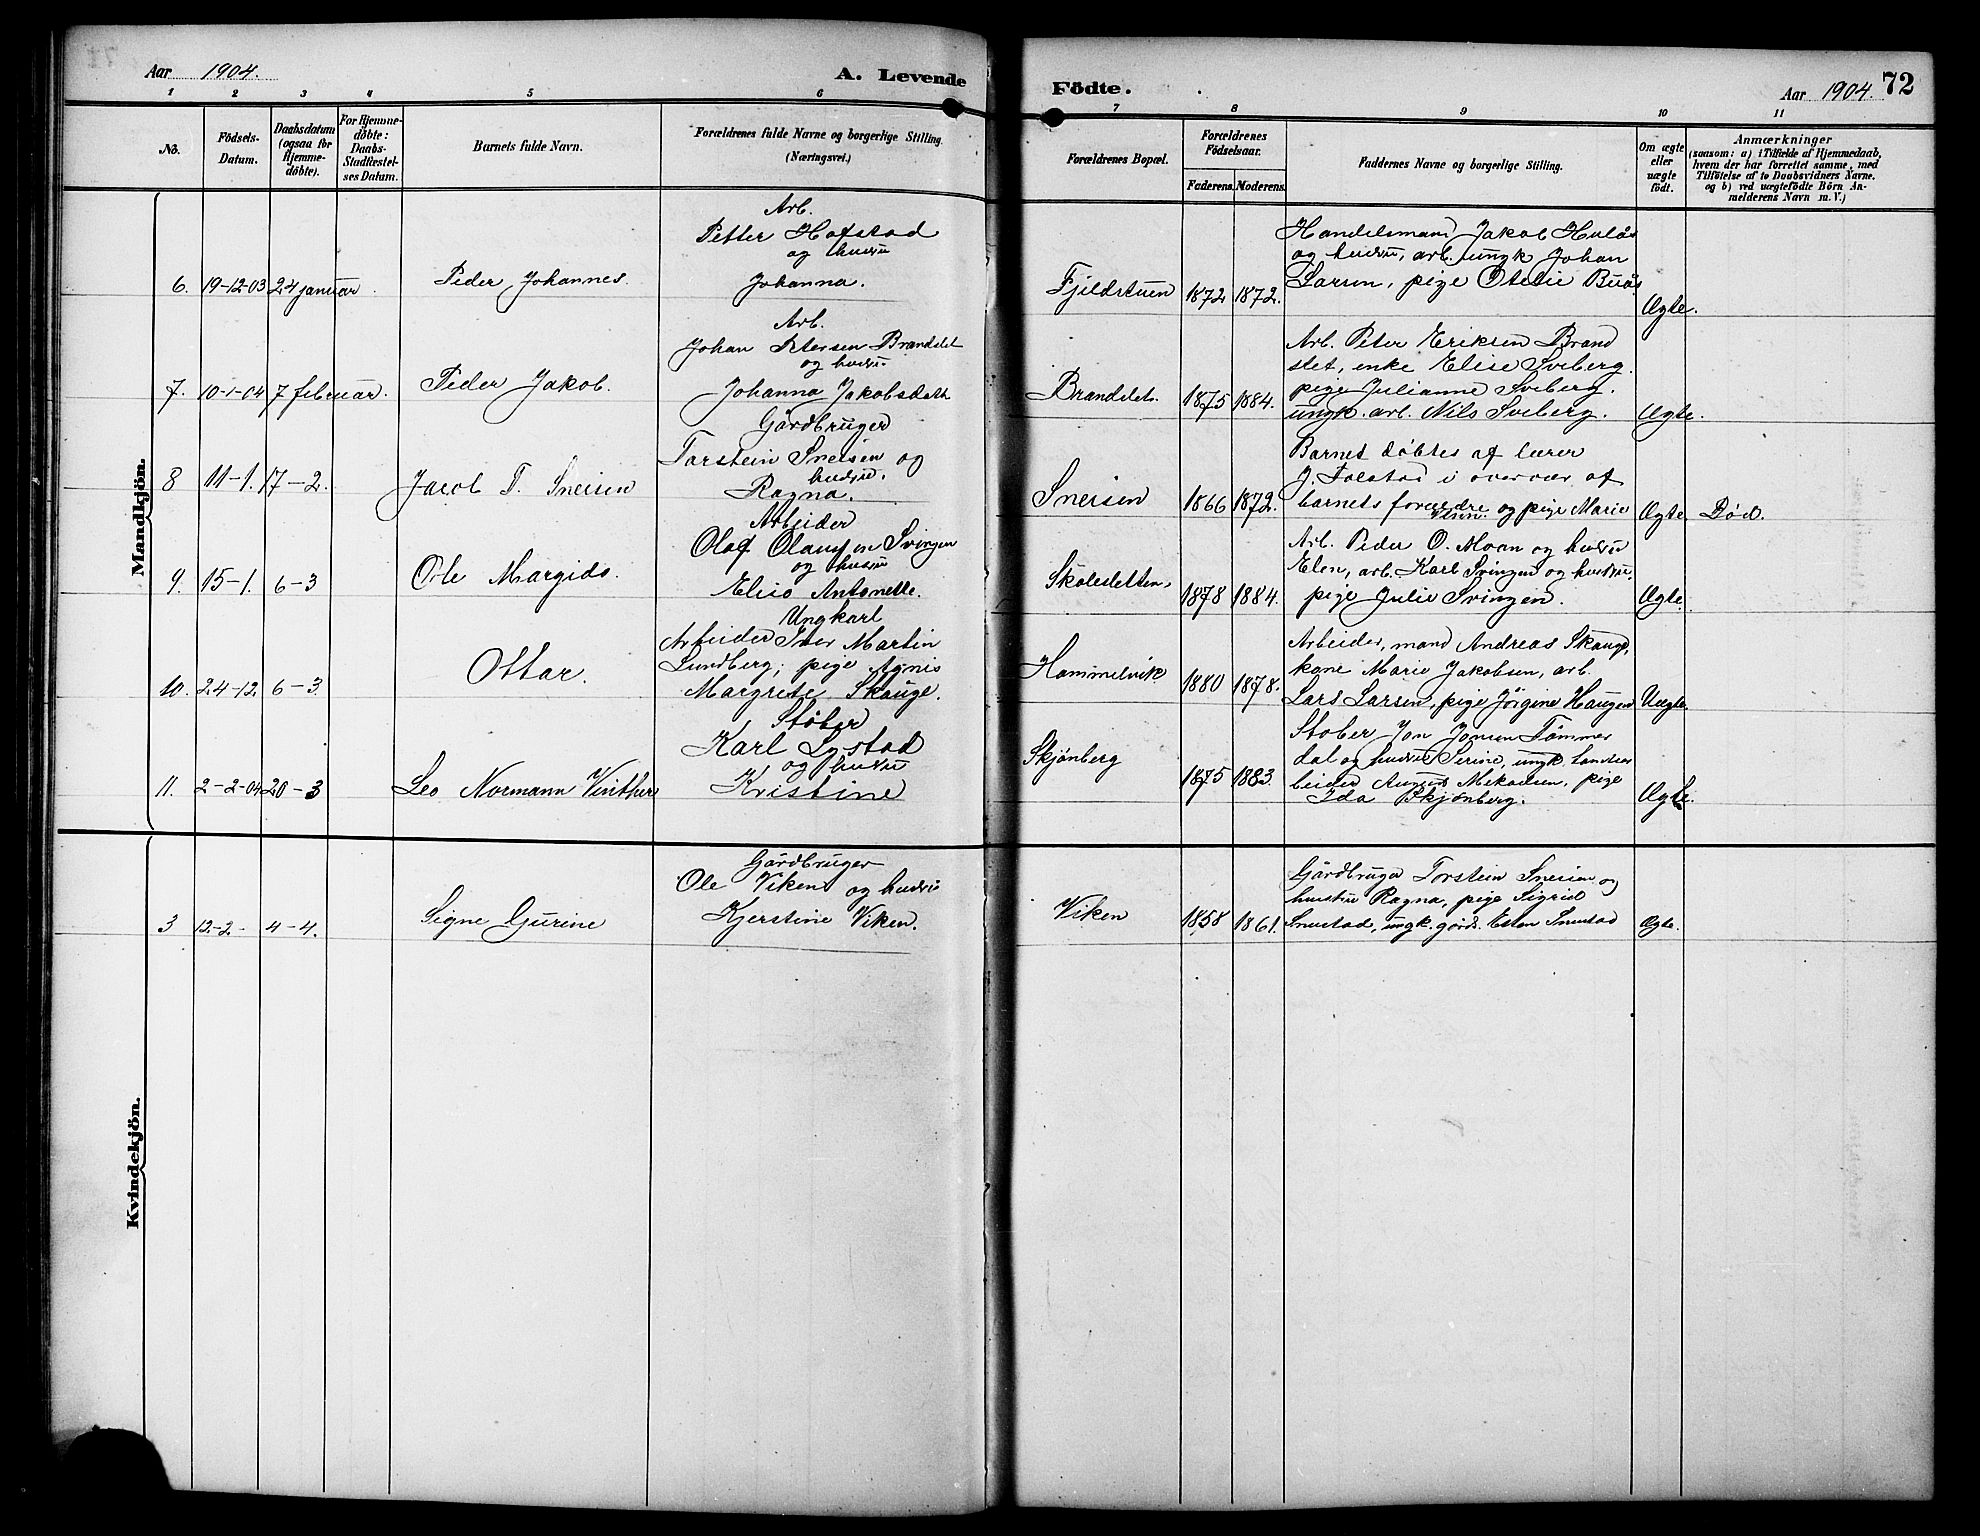 Aar 1904.
A. Levende
1 2 3 4 5 6
No.
Födsels-
Datum.
Daabsdatum
(ogsaa for
Hjemme-
döbte).
For Hjemme-
döbte:
Daabs-
Stadfæstel-
ses Datum.
Barnets fulde Navn.
Forældrenes fulde Navne og borgerlige Stilling.
(Næringsvei.)
Mandkjön.
Arb.
Petter Hofstad
og hustru
6. 19-12-03 24 januar. Peder Johannes. Johanna.
Arb.
Johan Petersen Brandslet
og hustru
7. 10-1-04 7 februar. Peder Jakob. Johanna Jakobsdatt
Gårdbruger
Torstein Sneisen og
hustru.
8 11-1. 17-2. Jacob T. Sneisen Ragna.
Arbeider
Olaf Olausen Svingen
og hustru
9. 15-1. 6-3 Ole Margido. Elise Antonette.
Ungkarl
Arbeider Iver Martin
Lundberg, pige Agnis
10. 24-12 6-3. Ottar. Margrete Skauge.
Støber
Karl Lystad
og hustru
11. 2-2-04 20-3 Leo Normann Vinther Kristine
Kvindekjön.
Gårdbruger
Ole Viken og hustru
3 12-2- 4-4. Signe Gurine Kjerstine Viken.
Födte.
Aar 1904. 72
7 8 9 10 11
Forældrenes Bopæl.
Forældrenes
Födselsaar.
Faderens. Moderens.
Faddernes Navne og borgerlige Stilling.
Om ægte
eller
uægte
födt.
Anmærkninger
(saasom: a) i Tilfælde af Hjemmedaab,
hvem der har forrettet samme, med
Tilföielse af to Daabsvidners Navne.
og b) ved uægtefödte Börn An-
melderens Navn m. V.)
Handelsmand Jakob Hulås
og hustru, arb. ungk Johan
Fjeldstuen 1872 1872. Larsen, pige Otelie Buås Ægte.
Arb. Peter Eriksen Brand
slet, enke Elise Sveberg.
pige Julianne Sveberg.
Brandslet. 1875 1884. ungk. arb. Nils Sveberg. Ægte.
Barnet døbtes af lærer
J. Folstad i overvær af
Sneisen 1866 1872. barnets forældre og pige Marie Ægte. Død.
Arb. Peder O. Moan og hustru
Elen, arb. Karl Svingen og hustru,
Skolesletten, 1878 1884. pige Julie Svingen. Ægte.
Arbeider, mand Andreas Skauge
kone Marie Jakobsen, arb.
Hammelvik 1880 1878. Lars Larsen, pige Jørgine Haugen Uægte.
Støber Jon Jonsen Tømmer
dal og hustru Serine, ungk. landar
Skjønberg 1875 1883. beider August Mikalsen, pige
Ida Skjønberg. Ægte.
Gårdbruger Torstein Sneisen og
hustru Ragna, pige Sigrid
Viken 1858 1861. Snustad, ungk. gårdb. Esten Snustad Ægte.